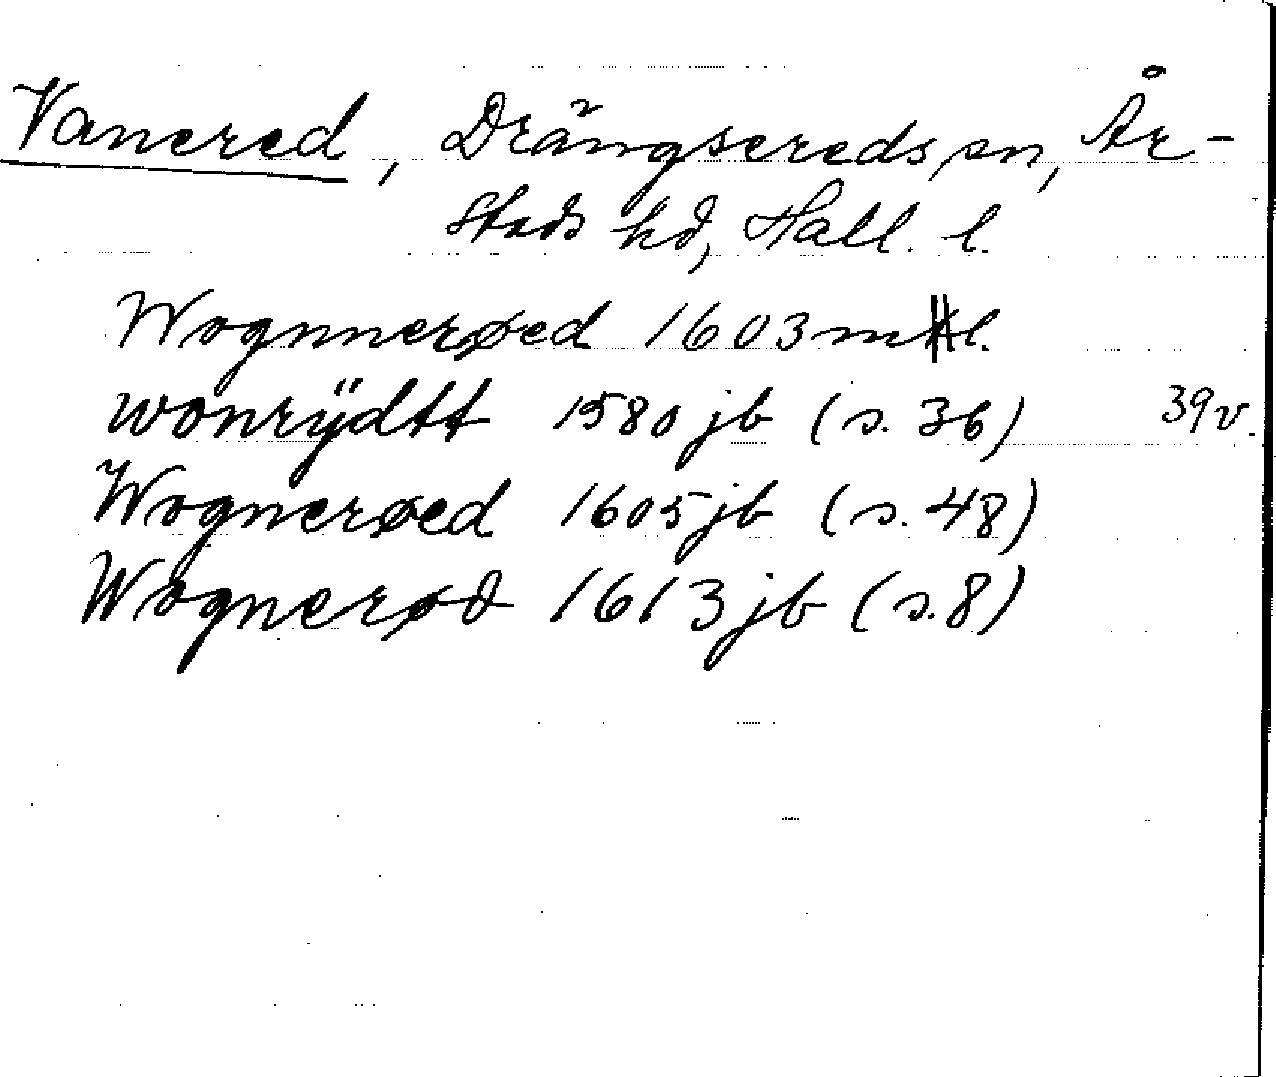 Vanered, Drängsereds sn, År-
stads hd, Hall. l.
Wognnerøed 1603 ml.
wonrÿdtt 1580 jb (s. 36) 39v.
Wognerøed 1605 jb (s. 48)
Wognerød 1613 jb (s. 8)